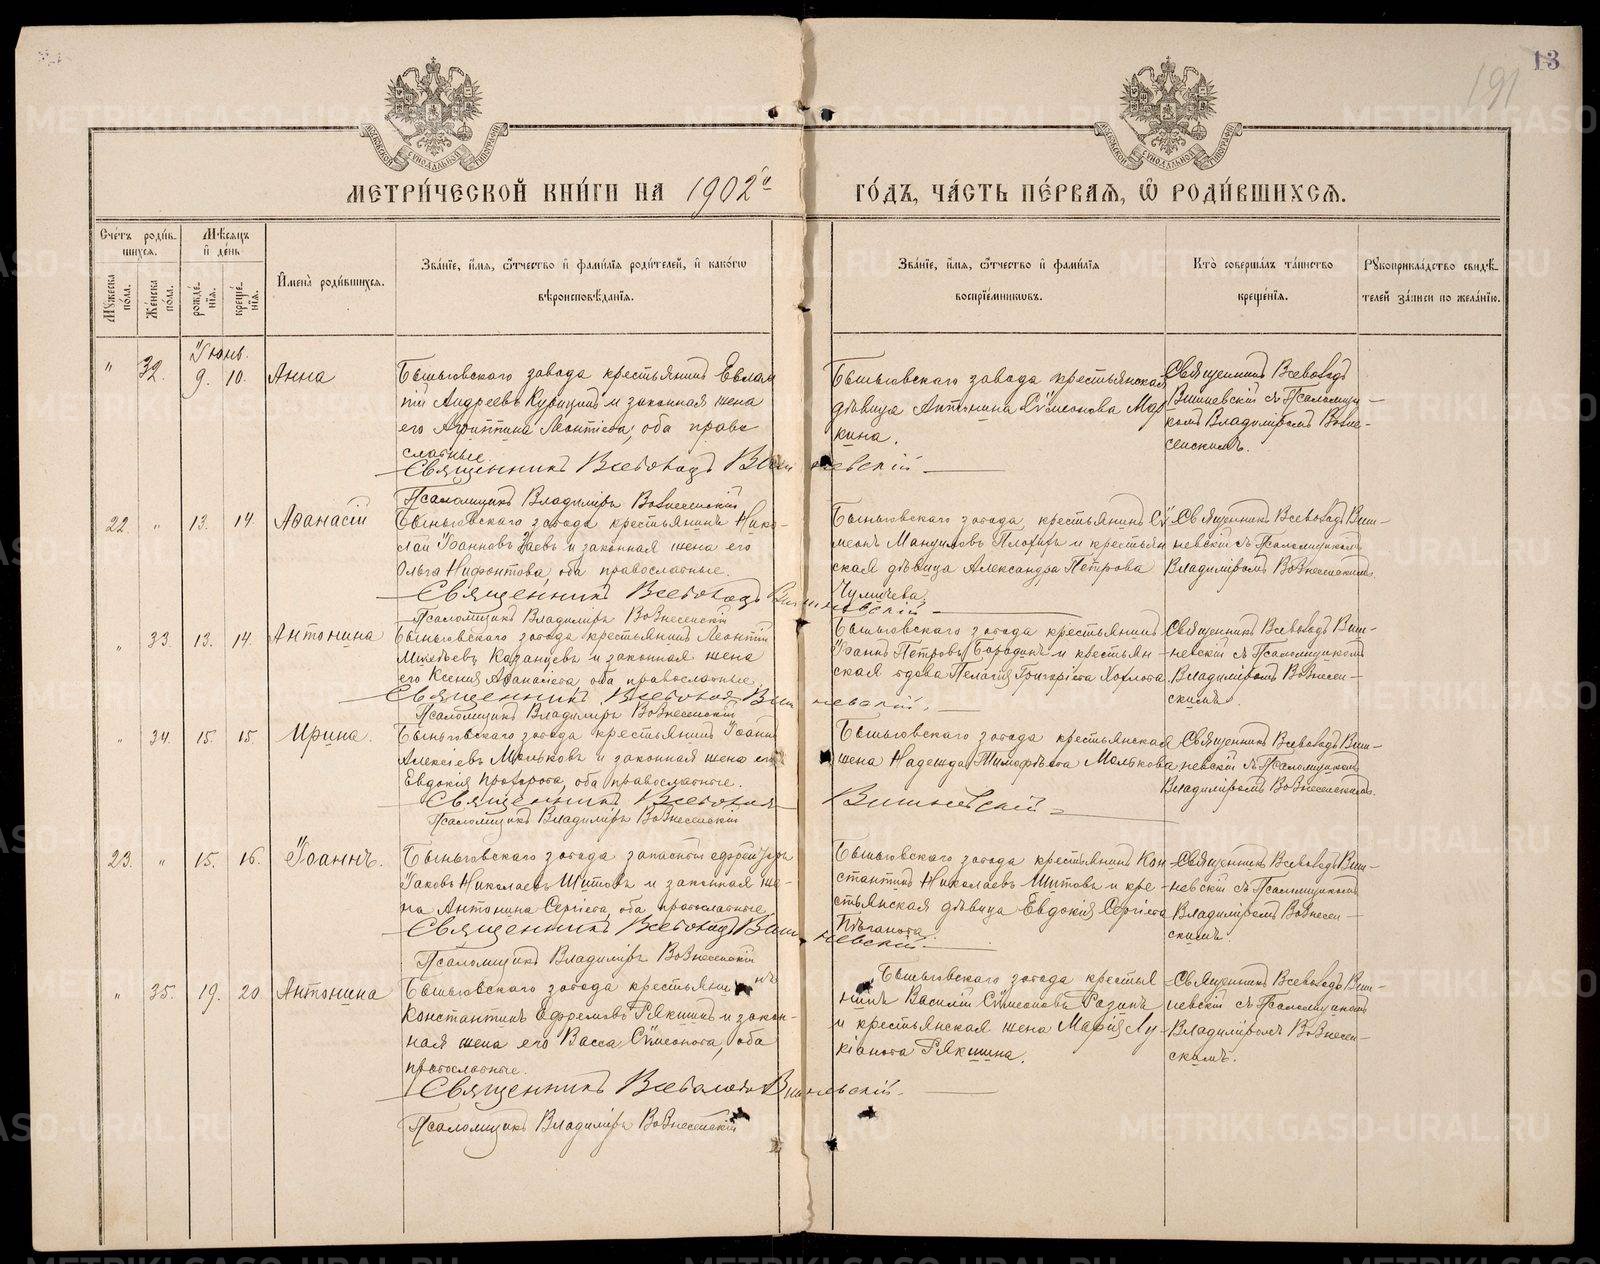 13
191
МОСКОВСКОЙ СѴНОДАЛЬНОЙ ТИПОГРАФІИ
МОСКОВСКОЙ СѴНОДАЛЬНОЙ ТИПОГРАФІИ
МЕТРИ́ЧЕСКОЙ КНИ́ГИ НА 1902й ГО́ДЪ, ЧА́СТЬ ПЕ́РВАЯ, Ѽ РОДИ́ВШИХСѦ.
Сче́тъ роди́в-
шихся.
Мѣ́сяцъ
и҆ де́нь
Мꙋ́жеска
по́ла.
Же́нска
по́ла.
рожде́-
нїя.
креще́-
нїя.
И҆мена̀ роди́вшихся.
Зва́нїе, и҆́мя, ѻ҆́тчество и҆ фами́лїя роди́телей, и҆ како́гѡ
вѣроисповѣ́данїя.
Зва́нїе, и҆́мя, ѻ҆́тчество и҆ фами́лїя
воспрїе́мниковъ.
Кто̀ соверша́лъ та́инство
креще́нїя.
Рꙋкоприкла́дство свидѣ́-
телей за́писи по жела́нїю.
Іюнь.
" 32. 9. 10. Анна
Быньговскаго завода крестьянинъ Евлам
пій Андреевъ Курицинъ и законная жена
его Агриппина Леонтіева, оба право
славные.
Священникъ Всеволодъ Вишневскій
Псаломщикъ Владиміръ Вознесенскій
Быньговскаго завода крестьянская
дѣвица Антонина Сѵмеонова Мар
кина.
Священникъ Всеволодъ
Вишневскій съ Псаломщи-
комъ Владиміромъ Возне-
сенскимъ.
22. " 13. 14. Аѳанасій
Быньговскаго завода крестьянинъ Нико-
лай Іоанновъ Заевъ и законная жена его
Ольга Нифонтова, оба православные.
Священникъ Всеволодъ Вишневскій
Псаломщикъ Владиміръ Вознесенскій
Быньговскаго завода, крестьянинъ Сѵ
меонъ Мануиловъ и крестьян
ская дѣвица Александра Петрова
Чумичева.
Священникъ Всеволодъ Виш-
невскій съ Псаломщикомъ
Владиміромъ Вознесенскимъ.
" 33. 13. 14. Антонина
Быньговскаго завода крестьянинъ Леонтій
Казанцевъ и законная жена
его Ксенія Аѳанасіева, оба православные.
Священникъ Всеволодъ Вишневскій.
Псаломщикъ Владиміръ Вознесенскій
Быньговскаго завода крестьянинъ
Іоаннъ Петровъ Бородинъ и крестьян-
ская вдова Пелагія Григоріева Хохлова
Священникъ Всеволодъ Виш-
невскій съ Псаломщикомъ
Владиміромъ Вознесен-
скимъ.
" 34. 15. 15. Ирина.
Быньговскаго завода крестьянинъ Іоаннъ
Алексіевъ Мольковъ и законная жена его
Евдокія Прохорова, оба православные.
Священникъ Всеволодъ Вишневскій
Псаломщикъ Владиміръ Вознесенскій
Быньговскаго завода крестьянская
жена Надежда Тимоѳеева Молькова
Священникъ Всеволодъ Виш-
невскій съ Псаломщикомъ
Владиміромъ Вознесенскимъ.
23. " 15. 16. Іоаннъ.
Быньговскаго завода запасный ефрейторъ
Іаковъ Николаевъ Шитовъ и законная же-
на Антонина Сергіева, оба православные.
Священникъ Всеволодъ Вишневскій.
Псаломщикъ Владиміръ Вознесенскій
Быньговскаго завода крестьянинъ Кон
стантинъ Николаевъ Шитовъ и кре-
стьянская дѣвица Евдокія Сергіева
Пѣганова
Священникъ Всеволодъ Виш-
невскій съ Псаломщикомъ
Владиміромъ Вознесен-
скимъ.
" 35. 19. 20 Антонина
Быньговскаго завода крестьянинъ
Константинъ Ефремовъ Рякшинъ и закон-
ная жена его Васса Сѵмеонова, оба
православные.
Священникъ Всеволодъ Вишневскій.
Псаломщикъ Владиміръ Вознесенскій
Быньговскаго завода крестья
нинъ Василій Сѵмеоновъ Розинъ
и крестьянская жена Марія Лу-
кіанова Рякшина.
Священникъ Всеволодъ Виш-
невскій съ Псаломщикомъ
Владиміромъ Вознесен-
скимъ.
METRIKI.GASO-URAL.RU